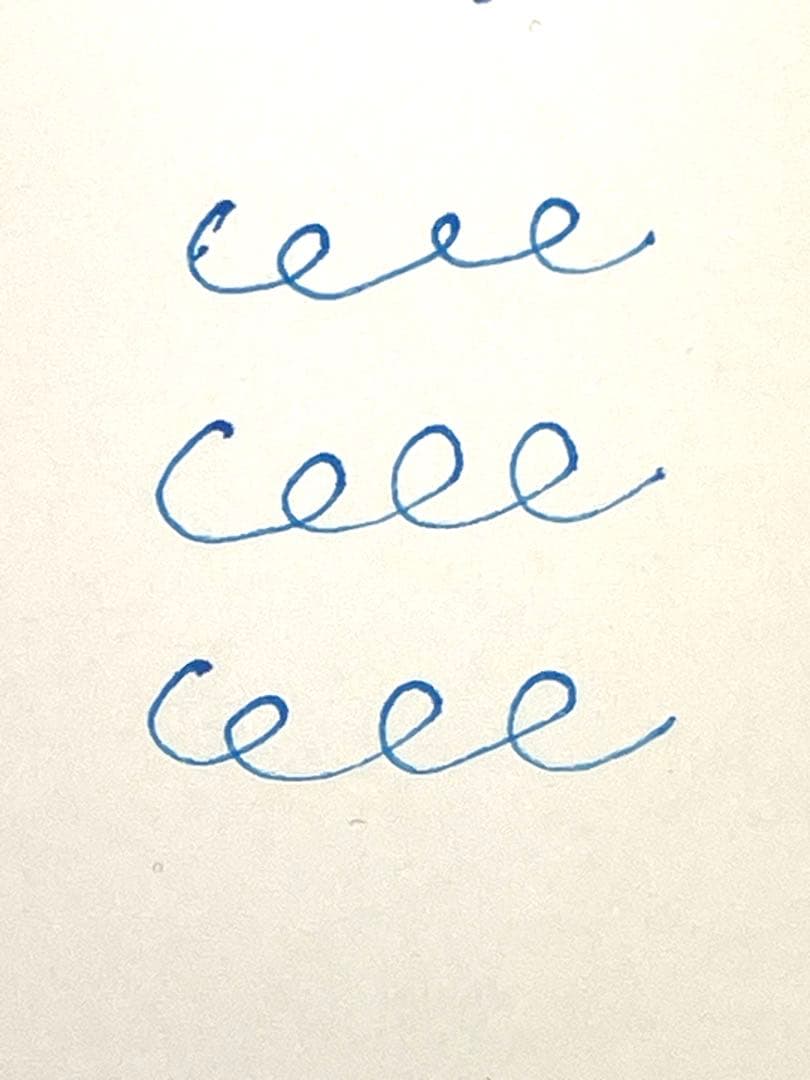 ceee
ceee
ceee